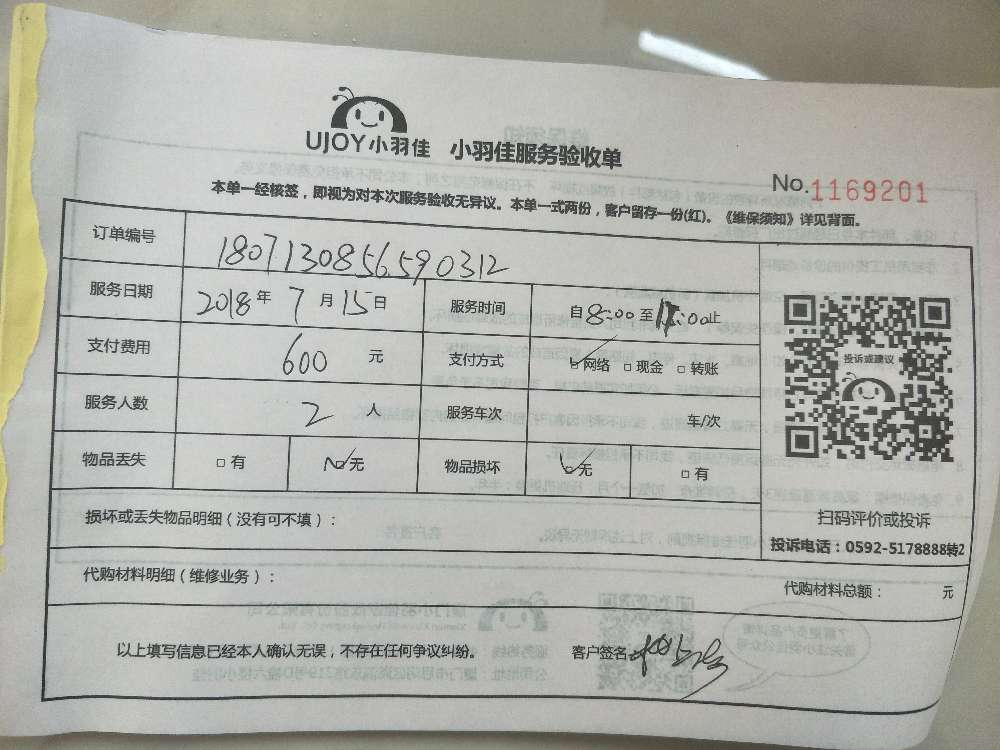 UJOY小羽佳 小羽佳服务验收单
No.1169201
本单一经核签，即视为对本次服务验收无异议。本单一式两份，客户留存一份(红)。《维保须知》详见背面。
订单编号 180713085659 0312
服务日期 2018年7月15日 服务时间 自8:00至 :00止
支付费用 600元 支付方式 网络 现金 转账
服务人数 2人 服务车次 车/次
物品丢失 有 无 物品损坏 无 有
投诉或建议
扫码评价或投诉
投诉电话：0592-5178888转2
损坏或丢失物品明细（没有可不填）：
代购材料明细（维修业务）： 代购材料总额： 元
以上填写信息已经本人确认无误，不存在任何争议纠纷。 客户签名：